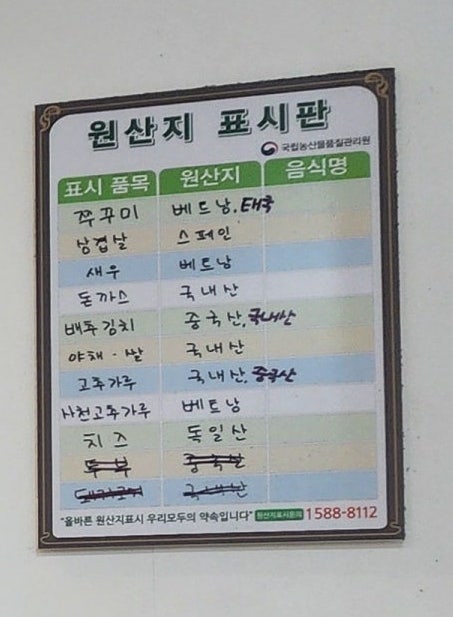 원산지 표시판
국립농산물품질관리원
표시 품목 원산지 음식명
쭈꾸미 베트남, 태국
삼겹살 스페인
새우 베트남
돈까스 국내산
배추김치 중국산, 국내산
야채·쌀 국내산
고추가루 국내산, 중국산
사천고추가루 베트남
치즈 독일산
두부 중국산
국내산
"올바른 원산지표시 우리모두의 약속입니다" 원산지표시문의 1588-8112